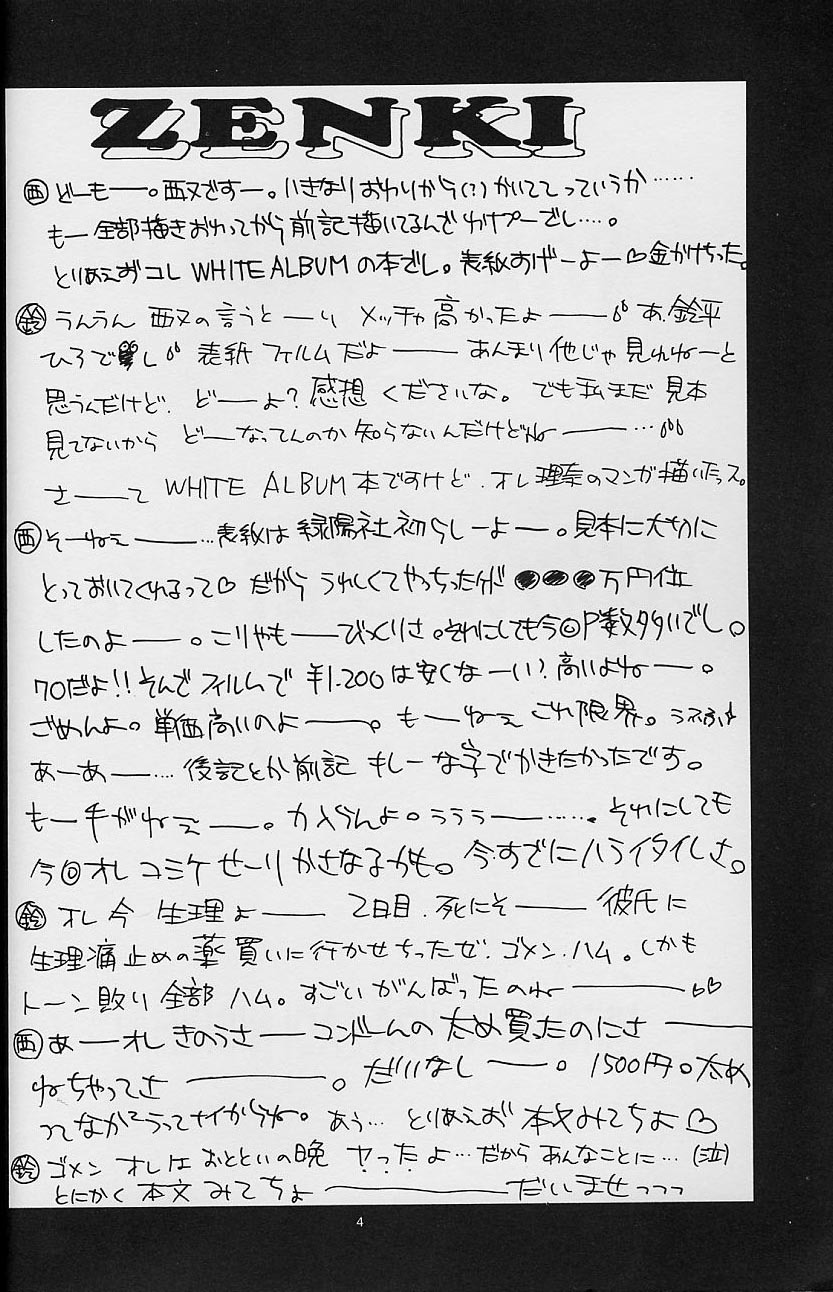 ZENKI
西 どーもー。西又ですー。いきなりおわりから(?)かいててっていうか……
もー全部描きおわってから前記描いてるんでわけプーでし…。
とりあえずコレ WHITE ALBUMの本でし。表紙すげーよー♡金かけちった。
鈴 うんうん 西又の言うとーり メッチャ高かったよー あ、鈴平
ひろでし 表紙 フィルムだよー あんまり他じゃ見れねーと
思うんだけど、どーよ?感想 くださいな。でも私まだ 見本
見てないから どーなってんのか知らないんだけどねー…
さーて WHITE ALBUM本ですけど、オレ理奈のマンガ描いたっス。
西 そーねぇー…表紙は緑陽社初らしーよー。見本に大切に
とっておいてくれるって♡ だから うれしくてやっちったけど ●●●万円位
したのよー。こりゃもーびっくりさ。それにしても今回P数多いでし。
70だよ!!そんでフィルムで ¥1.200は安くなーい?高いよねー。
ごめんよ。単価高いのよー。もーねぇ これ限界。
あーあー…後記とか前記 もしーな字でかきたかったです。
もー手がねぇー。力入らんよ。ううぅー……. それにしても
今回オレ コミケ せーりかさなるかも。今すでにハライタイしさ。
鈴 オレ今 生理よー 2日目、死にそー 彼氏に
生理痛止めの薬 買いに行かせちったゼ、ゴメン、ハム。しかも
トーン貼り 全部 ハム。すごい がんばったのねー♡♡
西 あーオレ きのうさーコンドームの 太め買ったのにさー
ねちゃってさー。だいなしー。1500円。太め
ってなかなかうってナイからね。あぅ… とりあえず 本文みてちょ♡
鈴 ゴメン オレは おとといの晩 ヤったよ…だから あんなことに…(泣)
とにかく 本文 みてちょーだいませっっっ
4